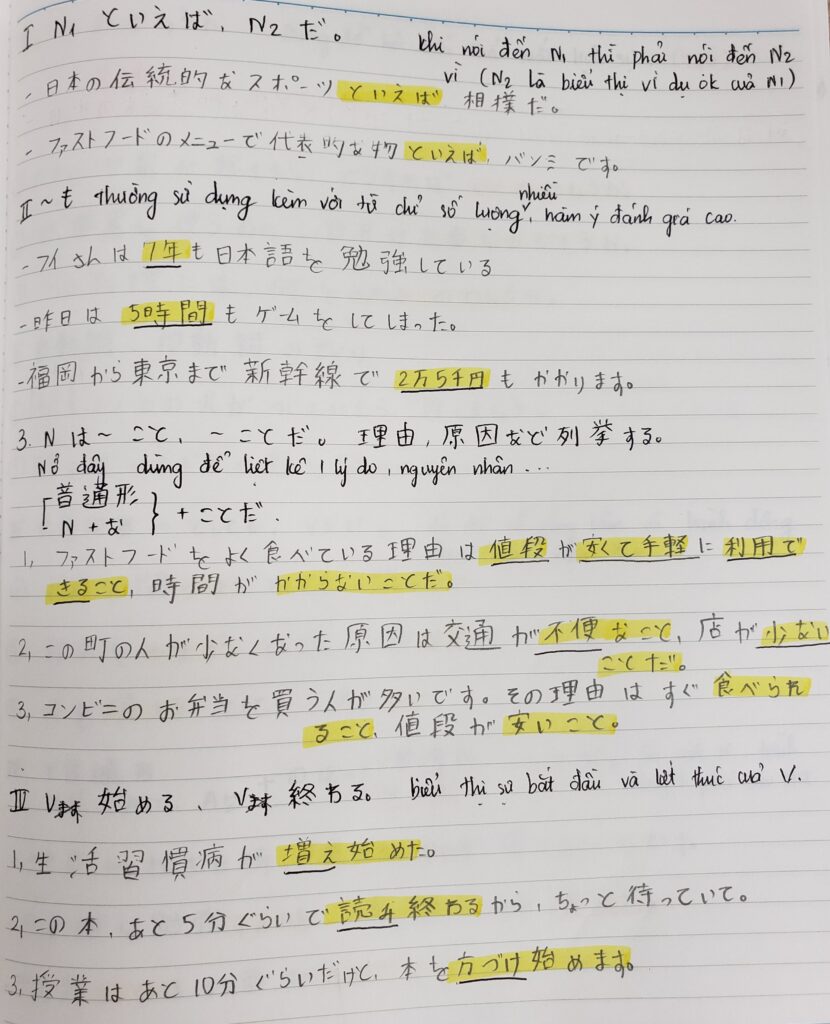 I N1 といえば、N2 だ。 khi nói đến N1 thì phải nói đến N2
vì (N2 là biểu thị ví dụ đk của N1)
- 日本の伝統的なスポーツといえば 相撲だ。
- ファストフードのメニューで代表的な物といえば、バンミです。
II ~も thường sử dụng kèm với từ chỉ số lượng nhiều, hàm ý đánh giá cao.
- フイさんは7年も日本語を勉強している
- 昨日は 5時間もゲームをしてしまった。
- 福岡から東京まで新幹線で 2万5千円もかかります。
3. N は~こと、~ことだ。 理由,原因など列挙する。
N ở đây dùng để liệt kê 1 lý do, nguyên nhân...
[普通形
N + な } + ことだ.
1, ファストフードをよく食べている理由は値段が安くて手軽に利用で
きること, 時間がかからないことだ。
2, この町の人が少なくなった原因は交通が不便なこと、店が少ない
ことだ。
3, コンビニのお弁当を買う人が多いです。その理由はすぐ食べられ
ること、値段が安いこと。
III Vます 始める、Vます 終わる。 biểu thị sự bắt đầu và kết thúc của V.
1, 生活習慣病が増え始めた。
2, この本、あと5分ぐらいで読み終わるから、ちょっと待っていて。
3, 授業はあと10分ぐらいだけど、本を方づけ始めます。